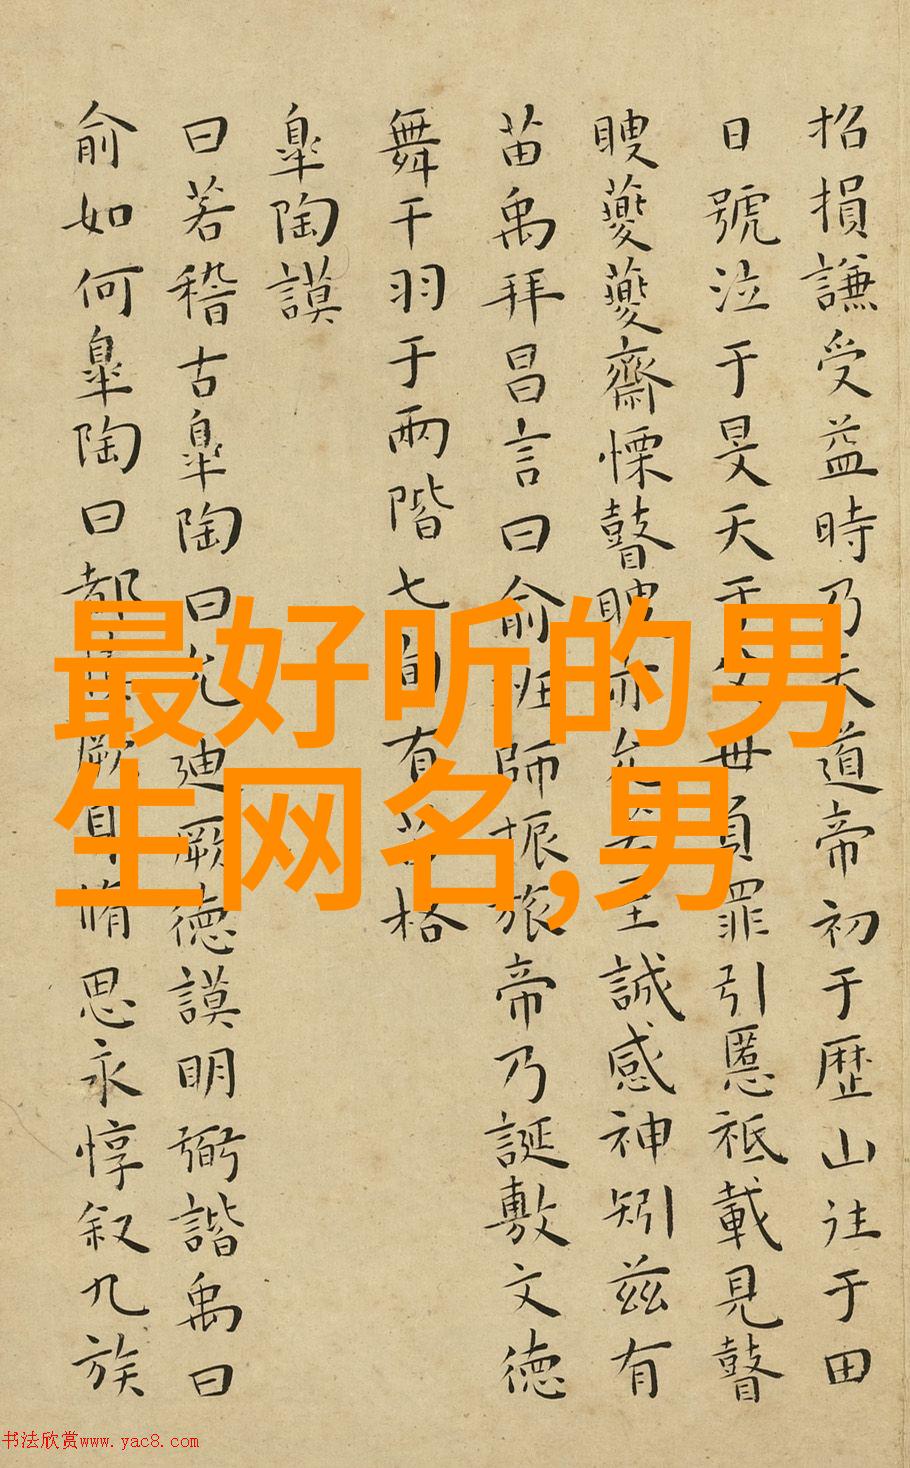 招損謙受益時乃天道帝初于歷山往于田
日號泣于旻天于父母負罪引慝祗載見瞽
瞍夔夔齋慄瞽瞍亦允若至誠感神矧茲有
苗禹拜昌言曰俞班師振旅帝乃誕敷文德
舞干羽于兩階七旬有苗格
臯陶謨
曰若稽古臯陶曰允迪厥德謨明弼諧禹曰
俞如何臯陶曰都慎厥身脩思永惇叙九族
最好听的男
生网名,男
书法欣赏www.yac8.com